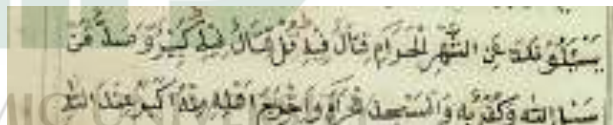 يَسْئَلُوْنَكَ عَنِ الشَّهْرِ الْحَرَامِ قِتَالٍ فِيْهِ قُلْ قِتَالٌ فِيْهِ كَبِيْرٌ وَصَدٌّ عَنْ
سَبِيْلِ اللّٰهِ وَكُفْرٌ بِهٖ وَالْمَسْجِدِ الْحَرَامِ وَاِخْرَاجُ اَهْلِهٖ مِنْهُ اَكْبَرُ عِنْدَ اللّٰهِ